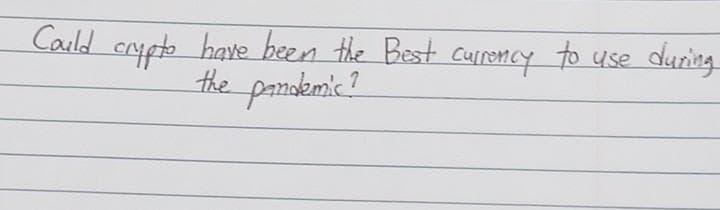 Could crypto have been the Best currency to use during
the pandemic?